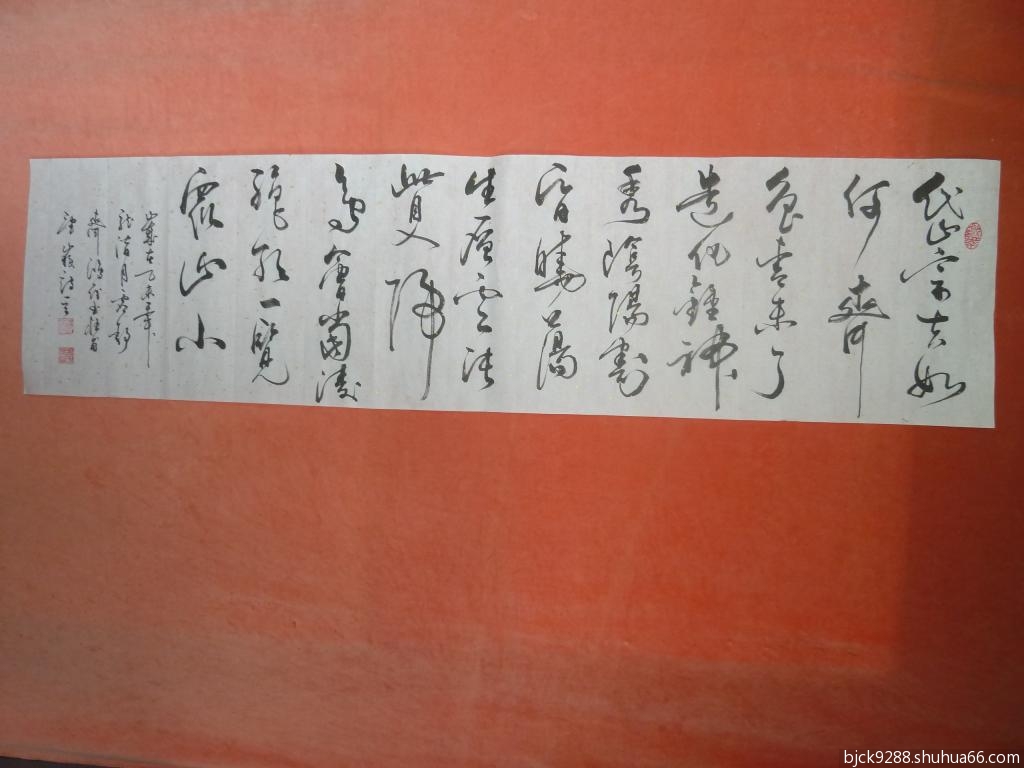 岱宗夫如
何齊
魯青未了
造化鍾神
秀陰陽割
昏曉蕩
生層雲決
眥入歸
鳥會當凌
絕頂一覽
眾山小
歲在乙未年
月書
齊
望嶽詩一
bjck9288.shuhua66.com